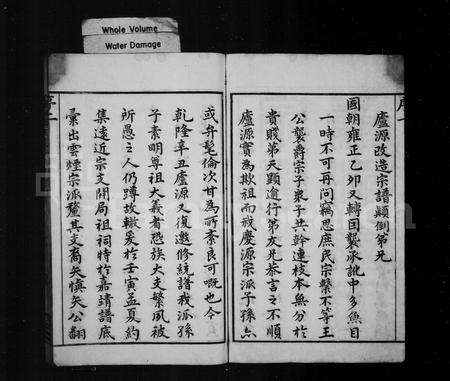 Whole Volume
Water Damage
序一
廬源改造宗譜顛倒第允
國朝雍正乙卯又轉目襲承訛中多魚目
一時不可再問竊思庶民宗繫不等王
公襲爵宗子衆子共幹連枝本無分於
貴賤第天顯逾行第友允恭言之不順
廬源實為欺祖而戕慶源宗派子孫亦
或弁髦倫次甘為所紊良可嘅也今
乾隆辛丑廬源又復邀修統譜我派孫
子素明尊祖大義者恐族大支繁夙被
所愚之人仍蹲故轍爰於壬寅孟夏約
集遠近宗支開局祖祠特於嘉靖譜底
彙出雲煙宗派釐其支裔矢慎矢公翻
序二